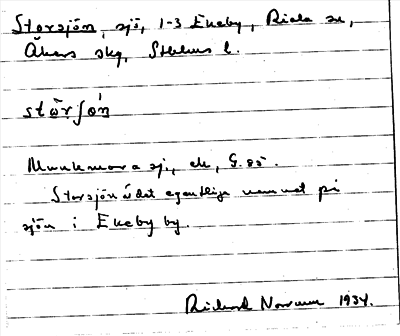 Storsjön, sjö, 1-3 Ekeby, Riala sn,
Åkers skg, Sthlms l.
stòrʃøn
Munkmora sj., ek, G. 85.
Storsjön är det egentliga namnet på
sjön i Ekeby by.
Rickard 1934.